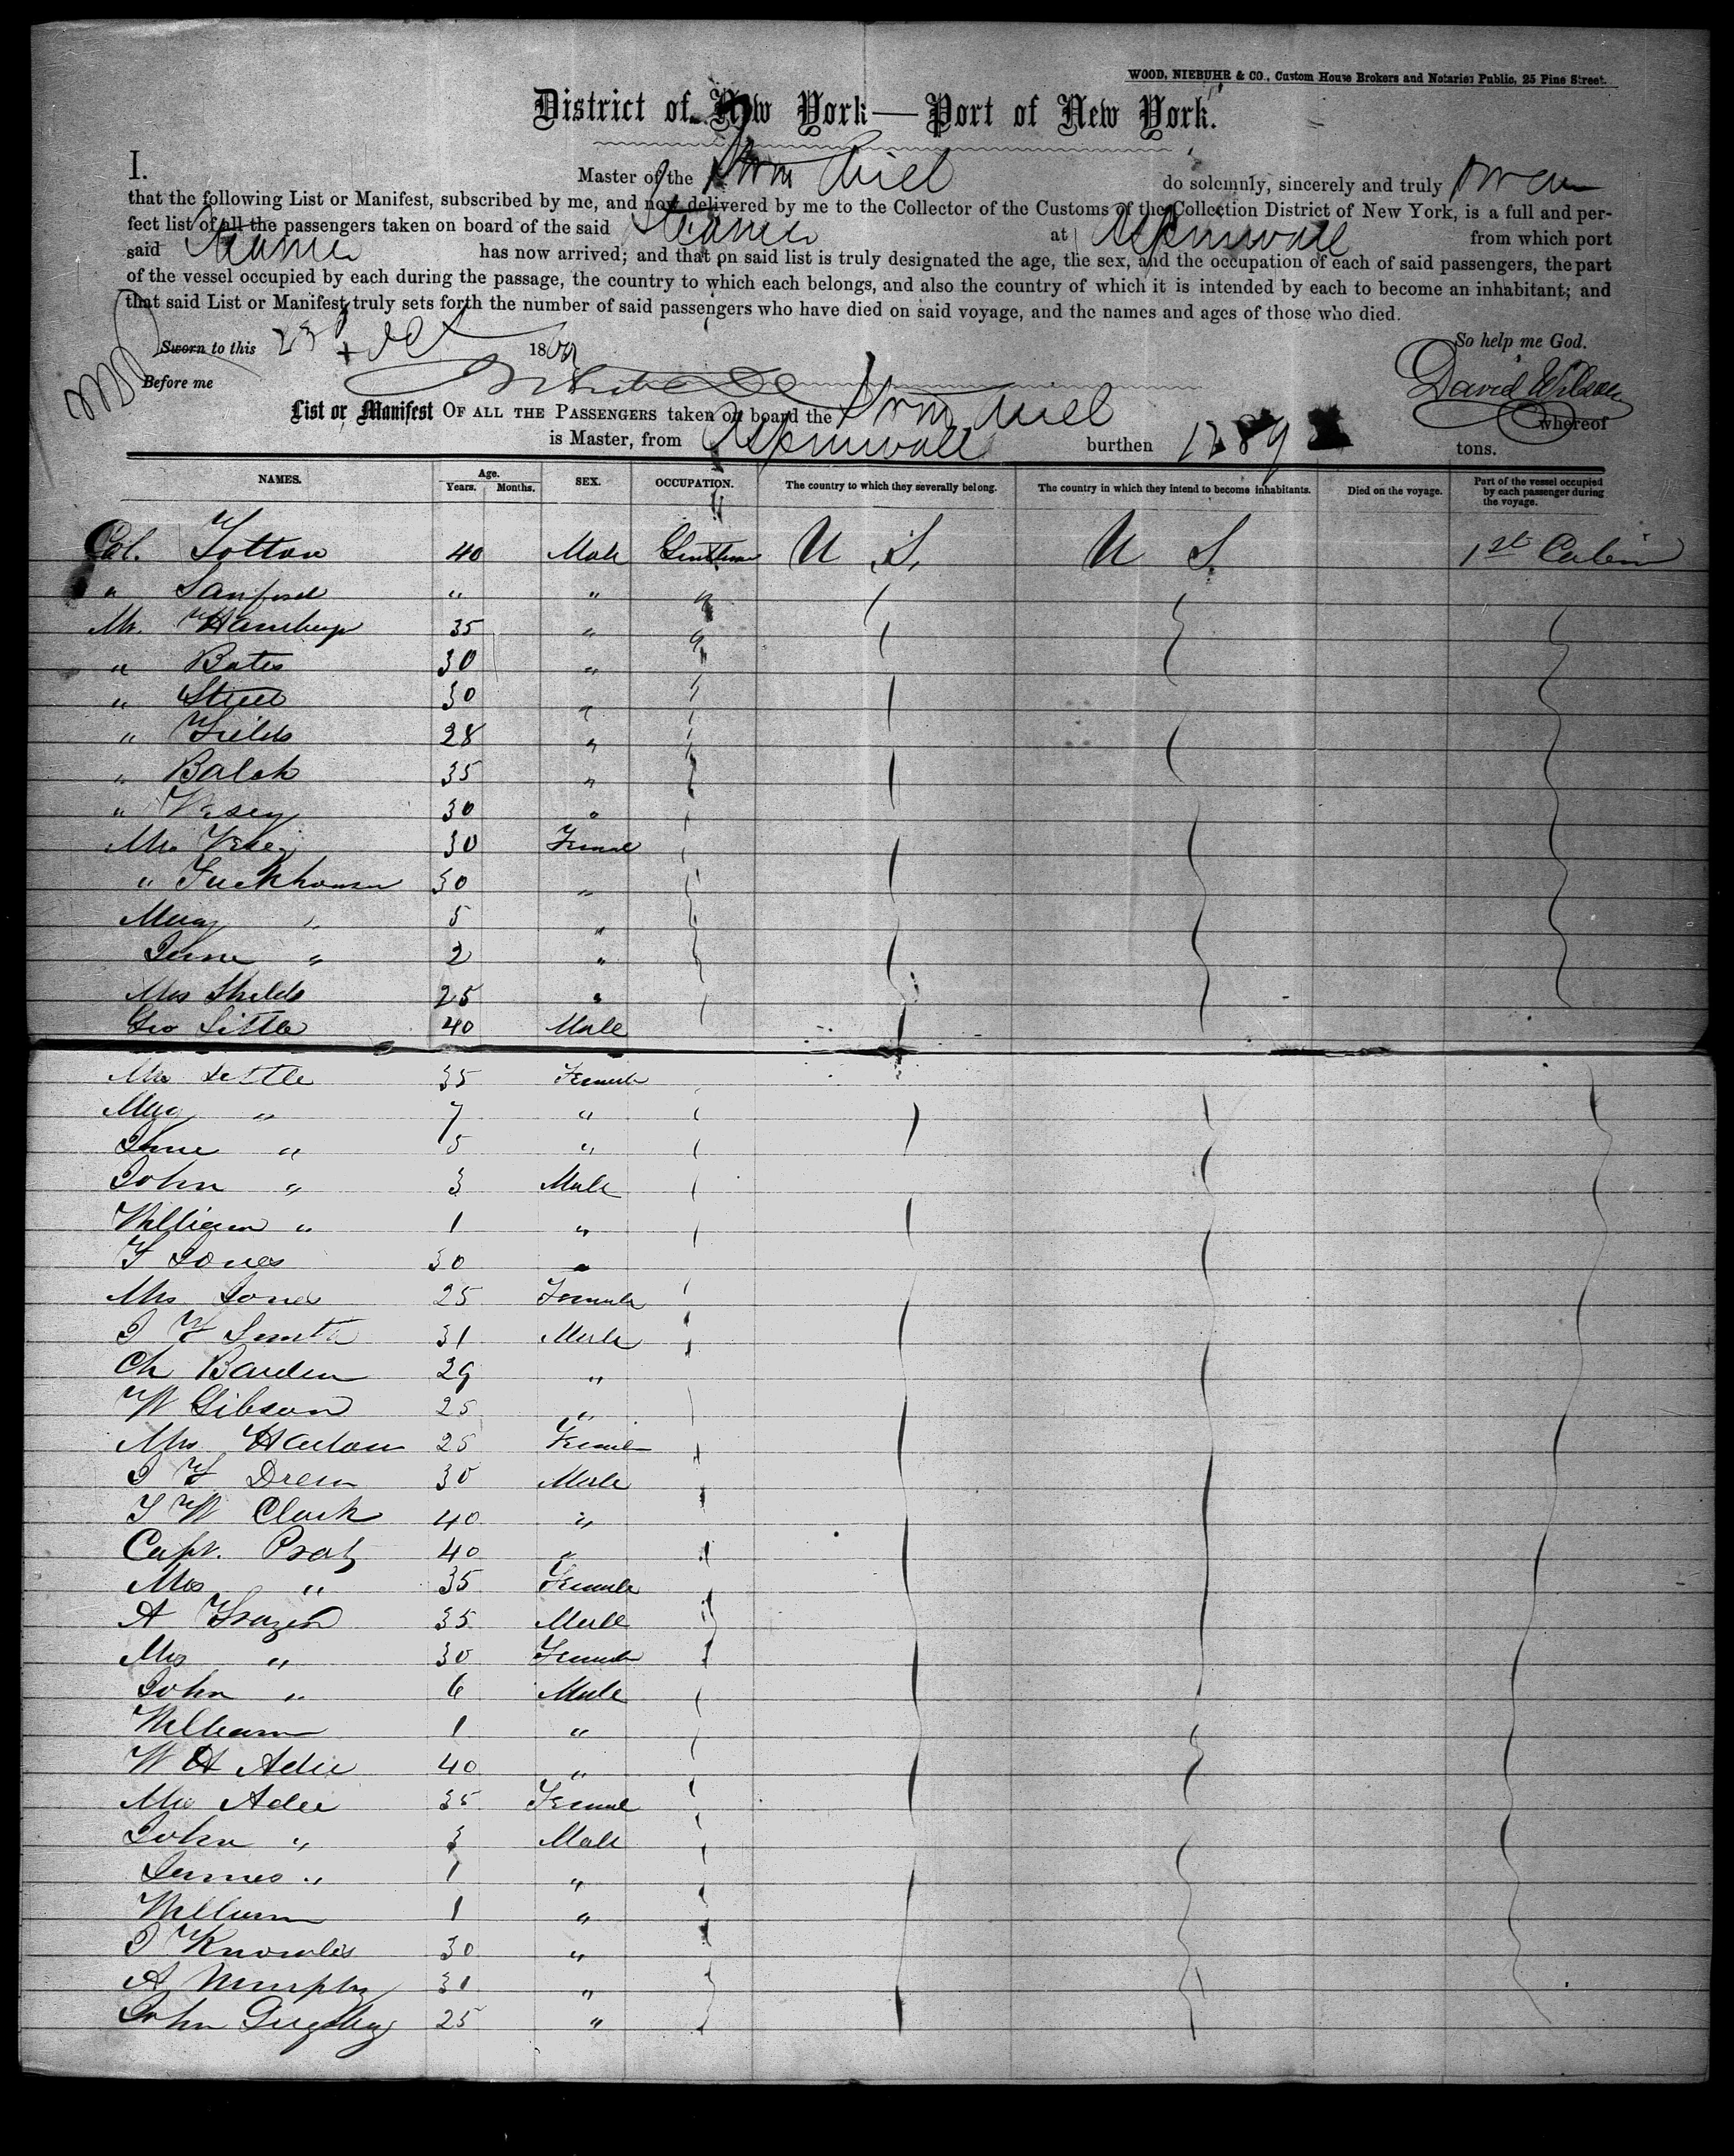 WOOD, NIEBUHR & CO., Custom House Brokers and Notaries Public, 25 Pine Street.
District of New York—Port of New York.
I. Master of the Stm Ariel do solemnly, sincerely and truly swear
that the following List or Manifest, subscribed by me, and now delivered by me to the Collector of the Customs of the Collection District of New York, is a full and per-
fect list of all the passengers taken on board of the said Steamer at Aspinwall from which port
said Steamer has now arrived; and that on said list is truly designated the age, the sex, and the occupation of each of said passengers, the part
of the vessel occupied by each during the passage, the country to which each belongs, and also the country of which it is intended by each to become an inhabitant; and
that said List or Manifest truly sets forth the number of said passengers who have died on said voyage, and the names and ages of those who died.
Sworn to this 23 Oct 186 So help me God.
Before me David Wilson
List or Manifest OF ALL THE PASSENGERS taken on board the Stm Ariel whereof
is Master, from Aspinwall burthen 1289 tons.
NAMES. Age. Years. Months. SEX. OCCUPATION. The country to which they severally belong. The country in which they intend to become inhabitants. Died on the voyage. Part of the vessel occupied by each passenger during the voyage.
Col. Totton 40 Male Gentleman U S. U S. 1st Cabin
" Sanford " " "
Mr. 35 " "
" Bates 30 "
" Steel 30 "
" Fields 28 "
" Balch 35 "
" Vesey 30 "
Mrs Vesey 30 Female
" 30 "
Mary " 5 "
Jane " 2 "
Mrs Shields 25 "
Geo Little 40 Male
Mrs Little 35 Female
Mary " 7 "
Jane " 5 "
John " 3 Male
William " 1 "
F Jones 30 "
Mrs Jones 25 Female
J F Smith 31 Male
Ch Barden 29 "
W Gibson 25 "
Mrs Harlow 25 Female
J F Drew 30 Male
F W Clark 40 "
Capt. Pratz 40 "
Mrs " 35 Female
A Frazer 35 Male
Mrs " 30 Female
John " 6 Male
William 1 "
W H Adee 40 "
Mrs Adee 35 Female
John " 3 Male
James " 1 "
William 1 "
J Knowles 30 "
A Murphy 31 "
John 25 "